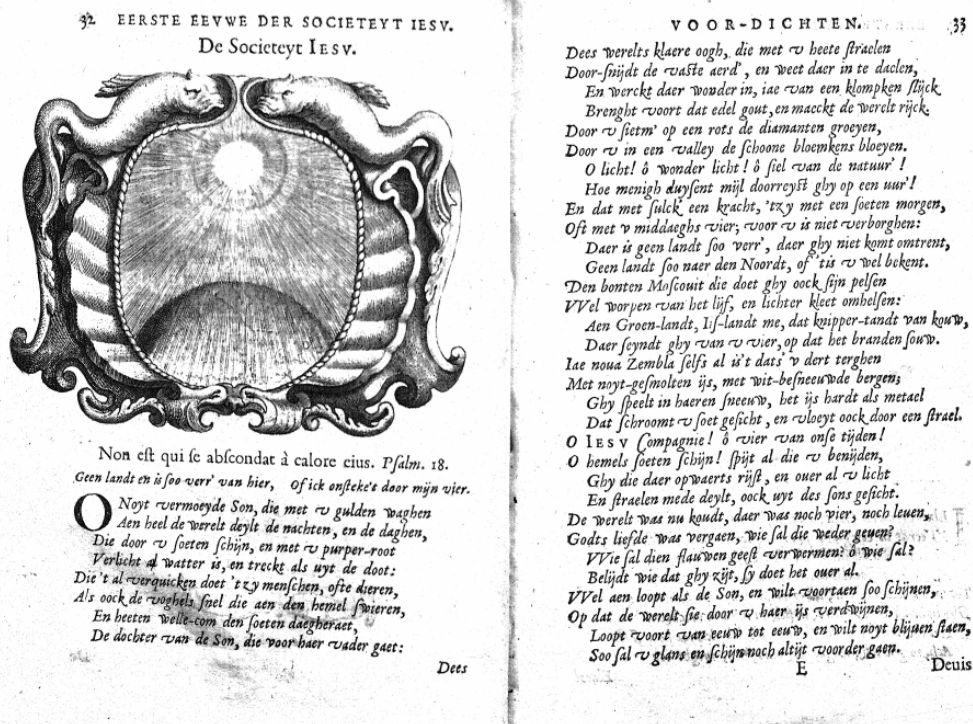 32 EERSTE EEVWE DER SOCIETEYT IESV.
De Societeyt IESV.
Non est qui se abscondat à calore eius. Psalm. 18.
Geen landt en is soo verr' van hier, Of ick onsteke't door mijn vier.
O Noyt vermoeyde Son, die met v gulden waghen
Aen heel de werelt deylt de nachten, en de daghen,
Die door v soeten schijn, en met v purper-root
Verlicht al watter is, en treckt als uyt de doot:
Die 't al verquicken doet 'tzy menschen, ofte dieren,
Als oock de voghels snel die aen den hemel swieren,
En heeten welle-com den soeten daegheraet,
De dochter van de Son, die voor haer vader gaet:
Dees
VOOR-DICHTEN. 33
Dees werelts klaere oogh, die met v heete straelen
Door-snijdt de vaste aerd', en weet daer in te daelen,
En werckt daer wonder in, iae van een klompken slijck
Brenght voort dat edel gout, en maeckt de werelt rijck.
Door v sietm' op een rots de diamanten groeyen,
Door v in een valley de schoone bloemkens bloeyen.
O licht! ô wonder licht! ô siel van de natuur'!
Hoe menigh duysent mijl doorreyst ghy op een uur'!
En dat met sulck' een kracht, 'tzy met een soeten morgen,
Oft met v middaeghs vier; voor v is niet verborghen:
Daer is geen landt soo verr', daer ghy niet komt omtrent,
Geen landt soo naer den Noordt, of 'tis v wel bekent.
Den bonten Moscouit die doet ghy oock sijn pelsen
VVel worpen van het lijf, en lichter kleet omhelsen:
Aen Groen-landt, Iis-landt me, dat knipper-tandt van kouw,
Daer seyndt ghy van v vier, op dat het branden souw.
Iae noua Zembla selfs al is't dats' v dert terghen
Met noyt-gesmolten ijs, met wit-besneeuwde bergen;
Ghy speelt in haeren sneeuw, het ijs hardt als metael
Dat schroomt v soet gesicht, en vloeyt oock door een strael.
O IESV Compagnie! ô vier van onse tijden!
O hemels soeten schijn! spijt al die v benijden,
Ghy die daer opwaerts rijst, en ouer al v licht
En straelen mede deylt, oock uyt des sons gesicht.
De werelt was nu koudt, daer was noch vier, noch leuen,
Godts liefde was vergaen, wie sal die weder geuen?
VVie sal dien flauwen geest verwermen? ô wie sal?
Belijdt wie dat ghy zijt, sy doet het ouer al.
VVel aen loopt als de Son, en wilt voortaen soo schijnen,
Op dat de werelt sie door v haer ijs verdwijnen,
Loopt voort van eeuw tot eeuw, en wilt noyt blijuen staen,
Soo sal v glans en schijn noch altijt voorder gaen.
E Deuis